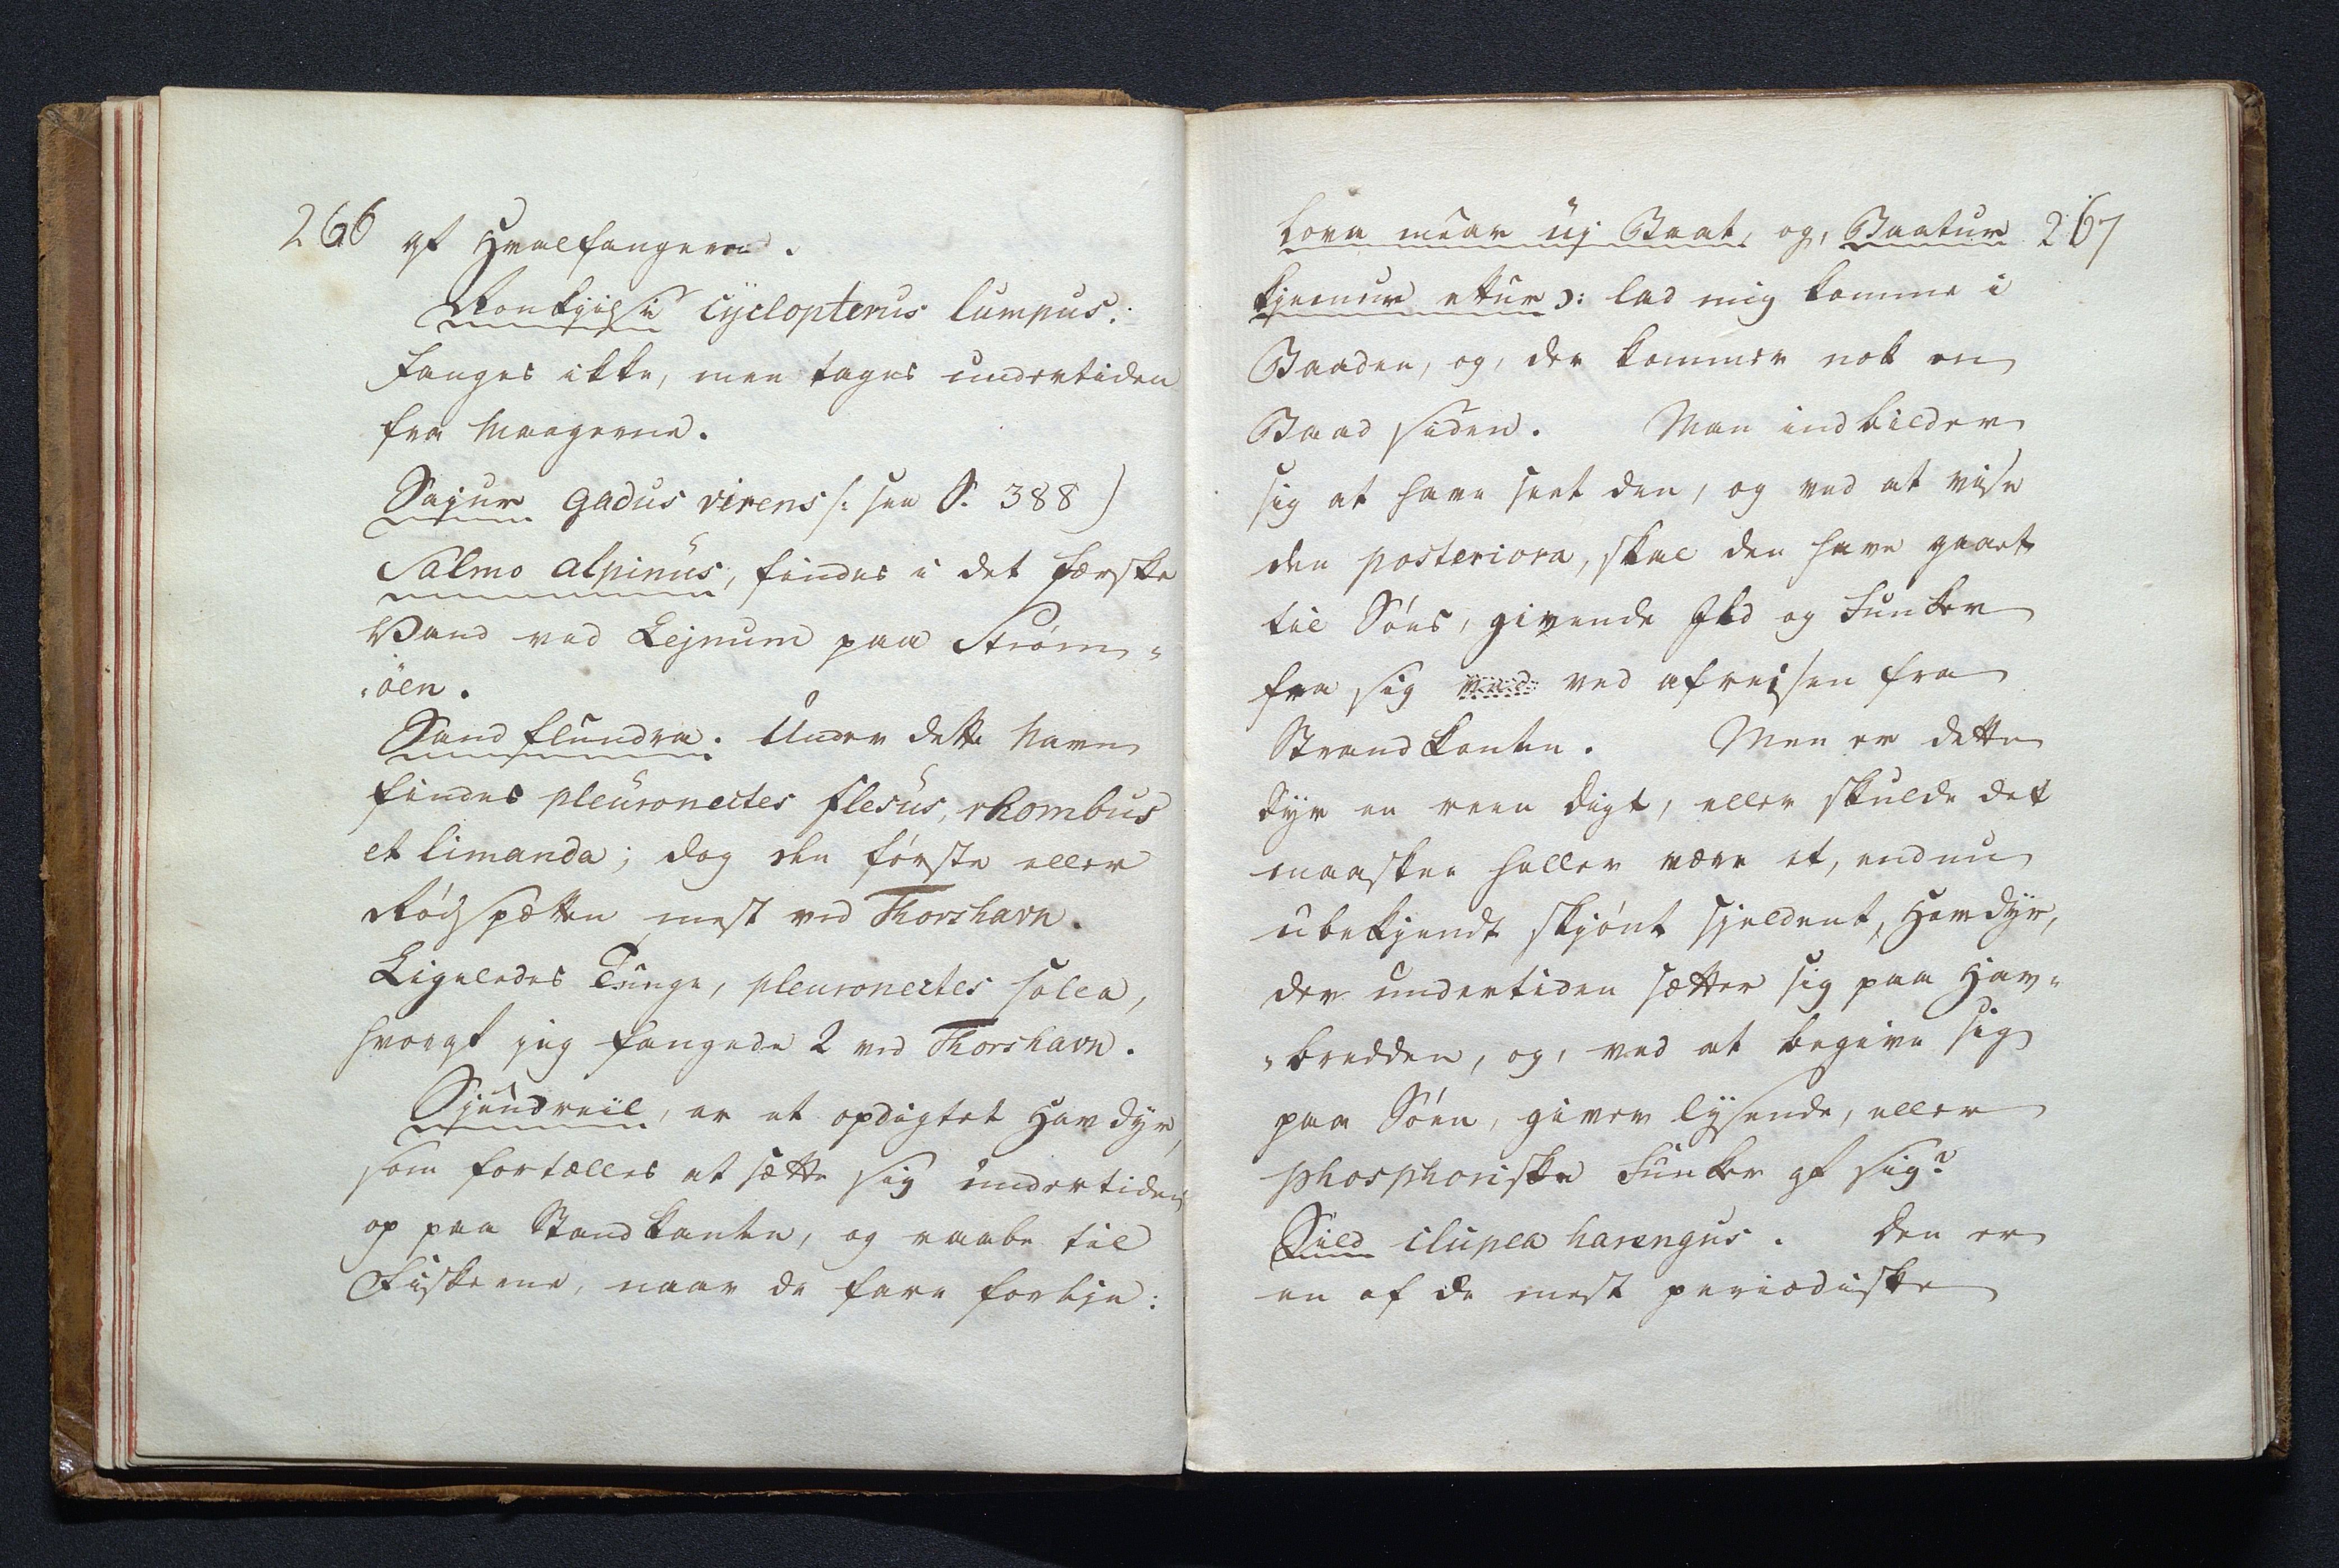 266
af Hvalfangerne.
Ronkjigsi cyclopterus lumpus.
Fanges ikke, men tages undertiden
fra Maagerne.
Sejur gadus virens /: see S. 388)
Salmo alpinus, findes i det færske
Vand ved Lejnum paa Strøm-
-öen.
Sandflundra. Under dette Navn
findes pleuronectes flesus, rhombus
et limanda; dog den første eller
Rödspætten mest ved Thorshavn.
Ligeledes Tunge, pleuronectes solea,
hvoraf jeg fangede 2 ved Thorshavn.
Sjeudreil, er et opdigtet Havdyr,
som fortælles at sætte sig undertiden
op paa Standkanten, og raabe til
Fiskerne, naar de fare forbje:
267
Lova mear uj Baat, og, Baatur
kjemur ettur ɔ: lad mig komme i
Baaden, og, der kommer nok en
Baad siden. Man indbilder
sig at have seet den, og ved at vise
den posteriora, skal den have gaaet
til Söes, givende Ild og Funker
fra sig ved afreisen fra
Strandkanten. Men er dette
Dyr en reen Digt, eller skulde det
maaskee heller være et, endnu
ubekjendt skjönt sjeldent, Havdyr,
der undertiden sætter sig paa Hav-
-bredden, og, ved at begive sig
paa Söen, giver lysende, eller
phosphoriske Funker af sig?
Sild clupea harengus. Den er
en af de mest periodiske